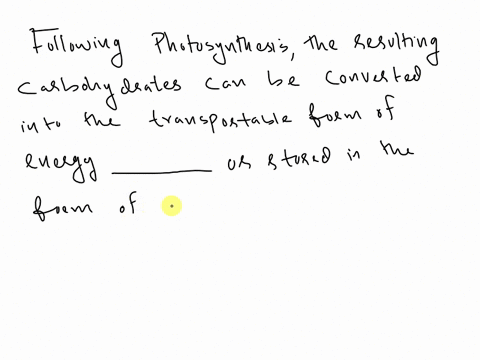 Following Photosynthesis, the resulting
carbohydrates can be converted
into the transportable form of
energy ________ or stored in the
form of